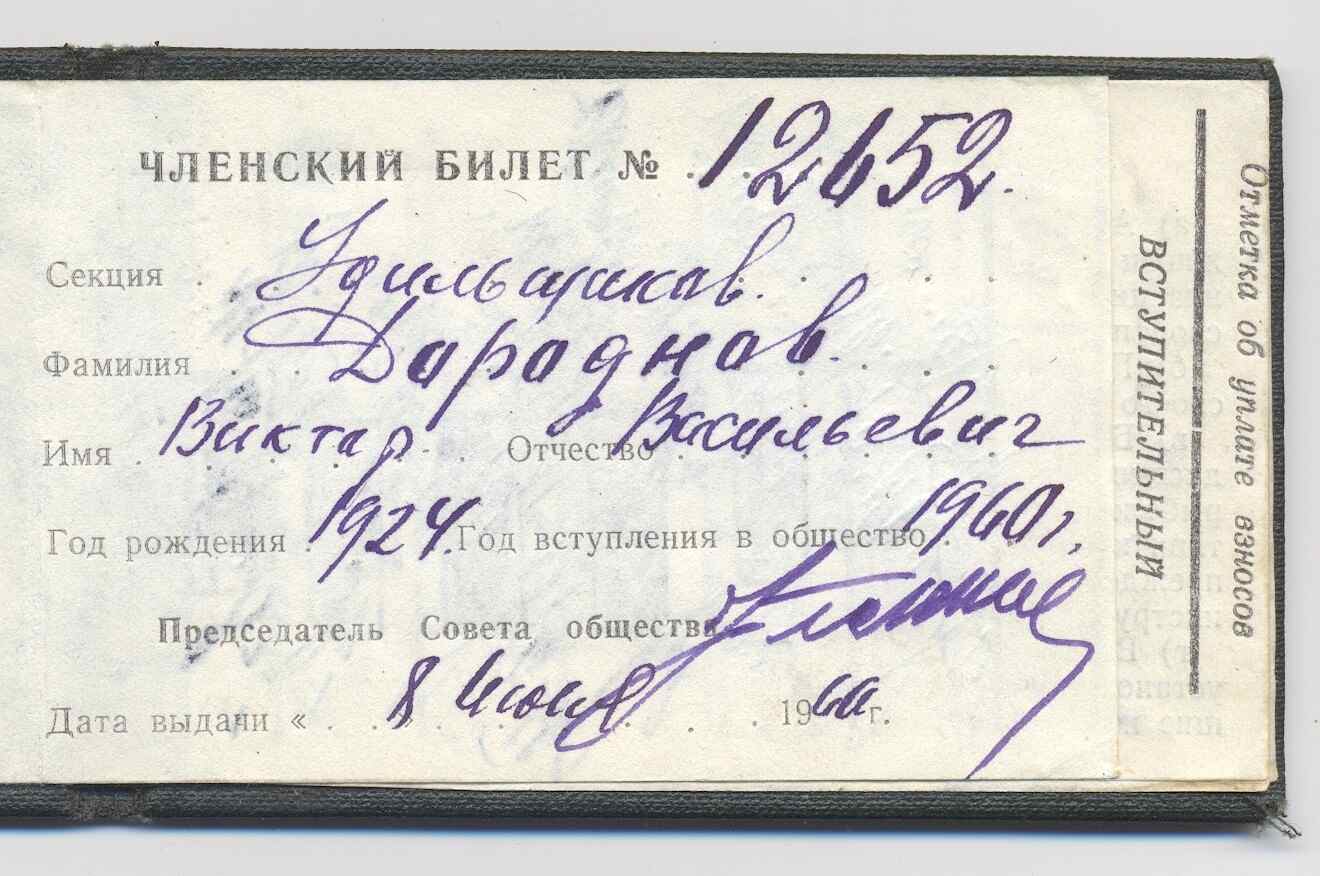 ЧЛЕНСКИЙ БИЛЕТ № 12652.
Секция Удильщиков.
Фамилия Дороднов.
Имя Виктор Отчество Васильевич
Год рождения 1924. Год вступления в общество 1960 г.
Председатель Совета общества
Дата выдачи « 8 Июля 1960 г.
ВСТУПИТЕЛЬНЫЙ
Отметка об уплате взносов